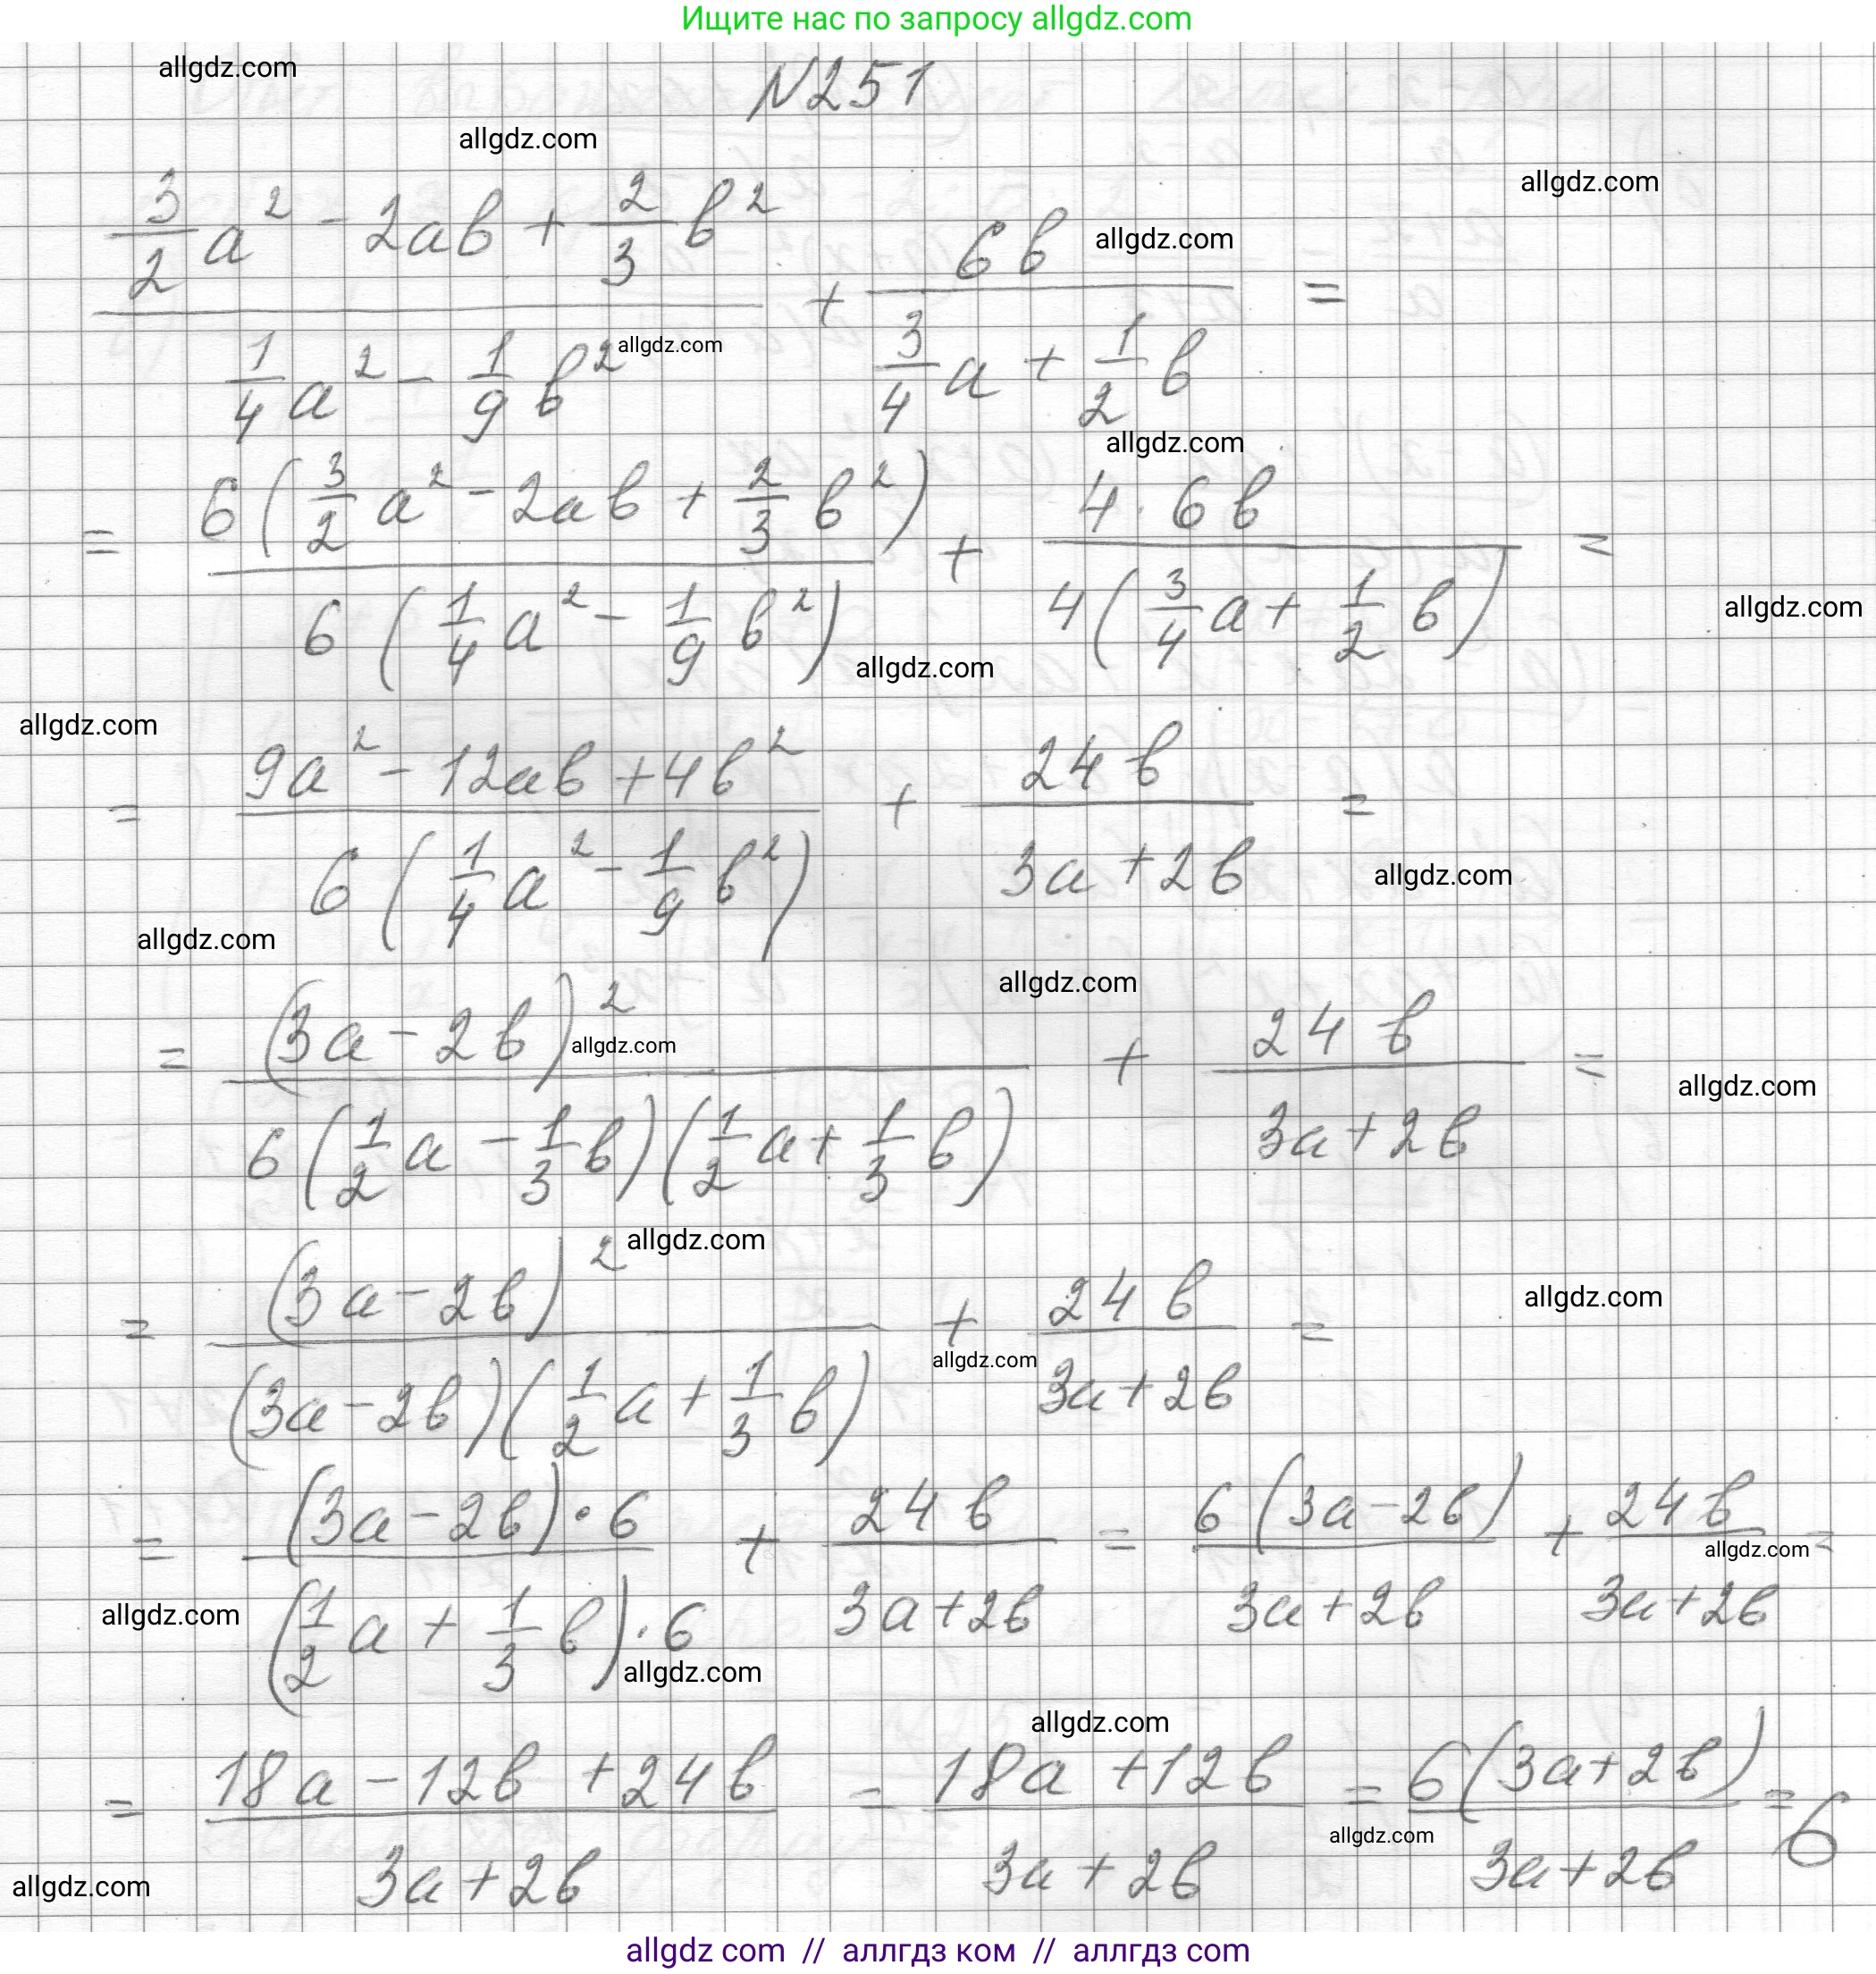 Ищите нас по запросу allgdz.com
allgdz.com
N251
allgdz.com
allgdz.com
\frac{\frac{3}{2}a^2 - 2ab + \frac{2}{3}b^2}{\frac{1}{4}a^2 - \frac{1}{9}b^2} + \frac{6b}{\frac{3}{4}a + \frac{1}{2}b} =
allgdz.com
allgdz.com
allgdz.com
= \frac{6(\frac{3}{2}a^2 - 2ab + \frac{2}{3}b^2)}{6(\frac{1}{4}a^2 - \frac{1}{9}b^2)} + \frac{4 \cdot 6b}{4(\frac{3}{4}a + \frac{1}{2}b)} =
allgdz.com
allgdz.com
allgdz.com
= \frac{9a^2 - 12ab + 4b^2}{6(\frac{1}{4}a^2 - \frac{1}{9}b^2)} + \frac{24b}{3a + 2b} =
allgdz.com
allgdz.com
allgdz.com
= \frac{(3a - 2b)^2}{6(\frac{1}{2}a - \frac{1}{3}b)(\frac{1}{2}a + \frac{1}{3}b)} + \frac{24b}{3a + 2b} =
allgdz.com
allgdz.com
allgdz.com
= \frac{(3a - 2b)^2}{(3a - 2b)(\frac{1}{2}a + \frac{1}{3}b)} + \frac{24b}{3a + 2b} =
allgdz.com
allgdz.com
= \frac{(3a - 2b) \cdot 6}{(\frac{1}{2}a + \frac{1}{3}b) \cdot 6} + \frac{24b}{3a + 2b} = \frac{6(3a - 2b)}{3a + 2b} + \frac{24b}{3a + 2b} =
allgdz.com
allgdz.com
allgdz.com
allgdz.com
= \frac{18a - 12b + 24b}{3a + 2b} = \frac{18a + 12b}{3a + 2b} = \frac{6(3a + 2b)}{3a + 2b} = 6
allgdz.com
allgdz.com
allgdz com // аллгдз ком // аллгдз com